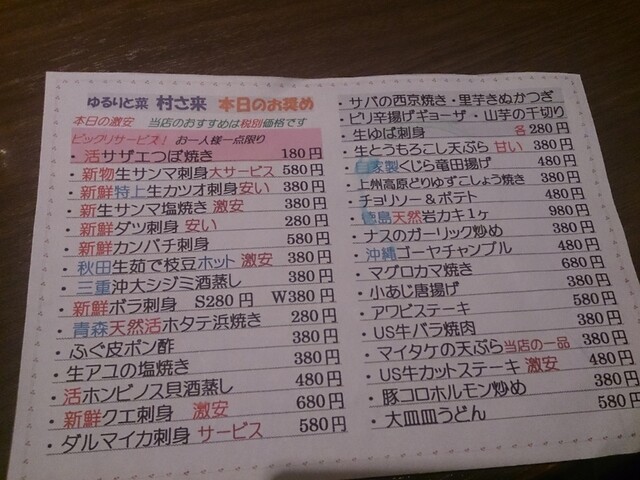 ゆるりと菜 村さ来 本日のお奨め
本日の激安 当店のおすすめは税別価格です
ビックリサービス! お一人様一点限り
・活サザエつぼ焼き 180円
・新物生サンマ刺身大サービス 580円
・新鮮特上生カツオ刺身安い 380円
・新生サンマ塩焼き 激安 380円
・新鮮ダツ刺身 安い 280円
・新鮮カンパチ刺身 580円
・秋田生茹で枝豆ホット 激安 380円
・三重沖大シジミ酒蒸し 380円
・新鮮ボラ刺身 S280円 W380円
・青森天然活ホタテ浜焼き 280円
・ふぐ皮ポン酢 380円
・生アユの塩焼き 380円
・活ホンビノス貝酒蒸し 480円
・新鮮クエ刺身 激安 680円
・ダルマイカ刺身 サービス 580円
・サバの西京焼き・里芋きぬかつぎ
・ピリ辛揚げギョーザ・山芋の千切り
・生ゆば刺身 各280円
・生とうもろこし天ぷら 甘い 380円
・自家製くじら竜田揚げ 480円
・上州高原どりゆずこしょう焼き 380円
・チョリソー&ポテト 480円
・徳島天然岩カキ1ヶ 980円
・ナスのガーリック炒め 380円
・沖縄ゴーヤチャンプル 480円
・マグロカマ焼き 680円
・小あじ唐揚げ 380円
・アワビステーキ 580円
・US牛バラ焼肉 380円
・マイタケの天ぷら当店の一品 380円
・US牛カットステーキ 激安 480円
・豚コロホルモン炒め 380円
・大皿皿うどん 580円